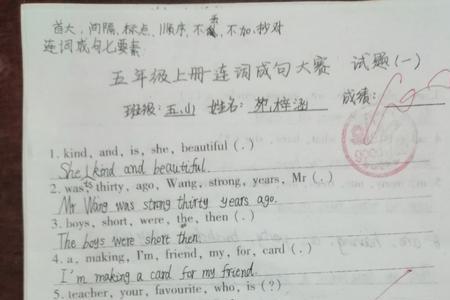 首大,间隔,标点,顺序,不丢,不加,抄对
连词成句七要素
五年级上册连词成句大赛 试题(一)
班级: 五.山 姓名: 梓涵 成绩:
1. kind, and, is, she, beautiful (.)
She is kind and beautiful
2. was, thirty, ago, Wang, strong, years, Mr (.)
Mr Wang was strong thirty years ago.
3. boys, short, were, the, then (.)
The boys were short then.
4. a, making, I'm, friend, my, for, card (.)
I'm making a card for my friend.
5. teacher, your, favourite, who, is (?)